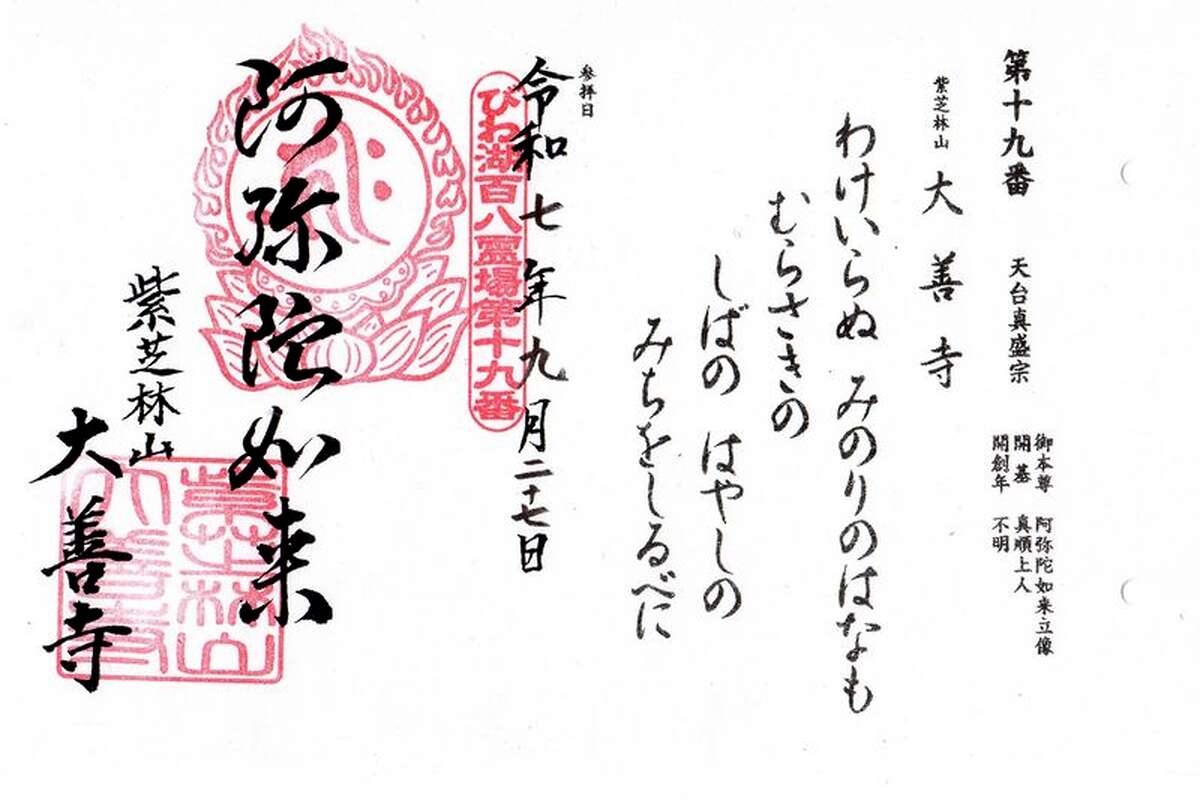 第十九番 天台真盛宗
御本尊 阿弥陀如来立像
開基 真順上人
開創年 不明
紫芝林山 大善寺
わけいらぬ みのりのはなも
むらさきの
しばの はやしの
みちをしるべに
参拝日
令和七年九月二十七日
びわ湖百八霊場第十九番
阿弥陀如来
紫芝林山
大善寺
紫芝林山
大善寺